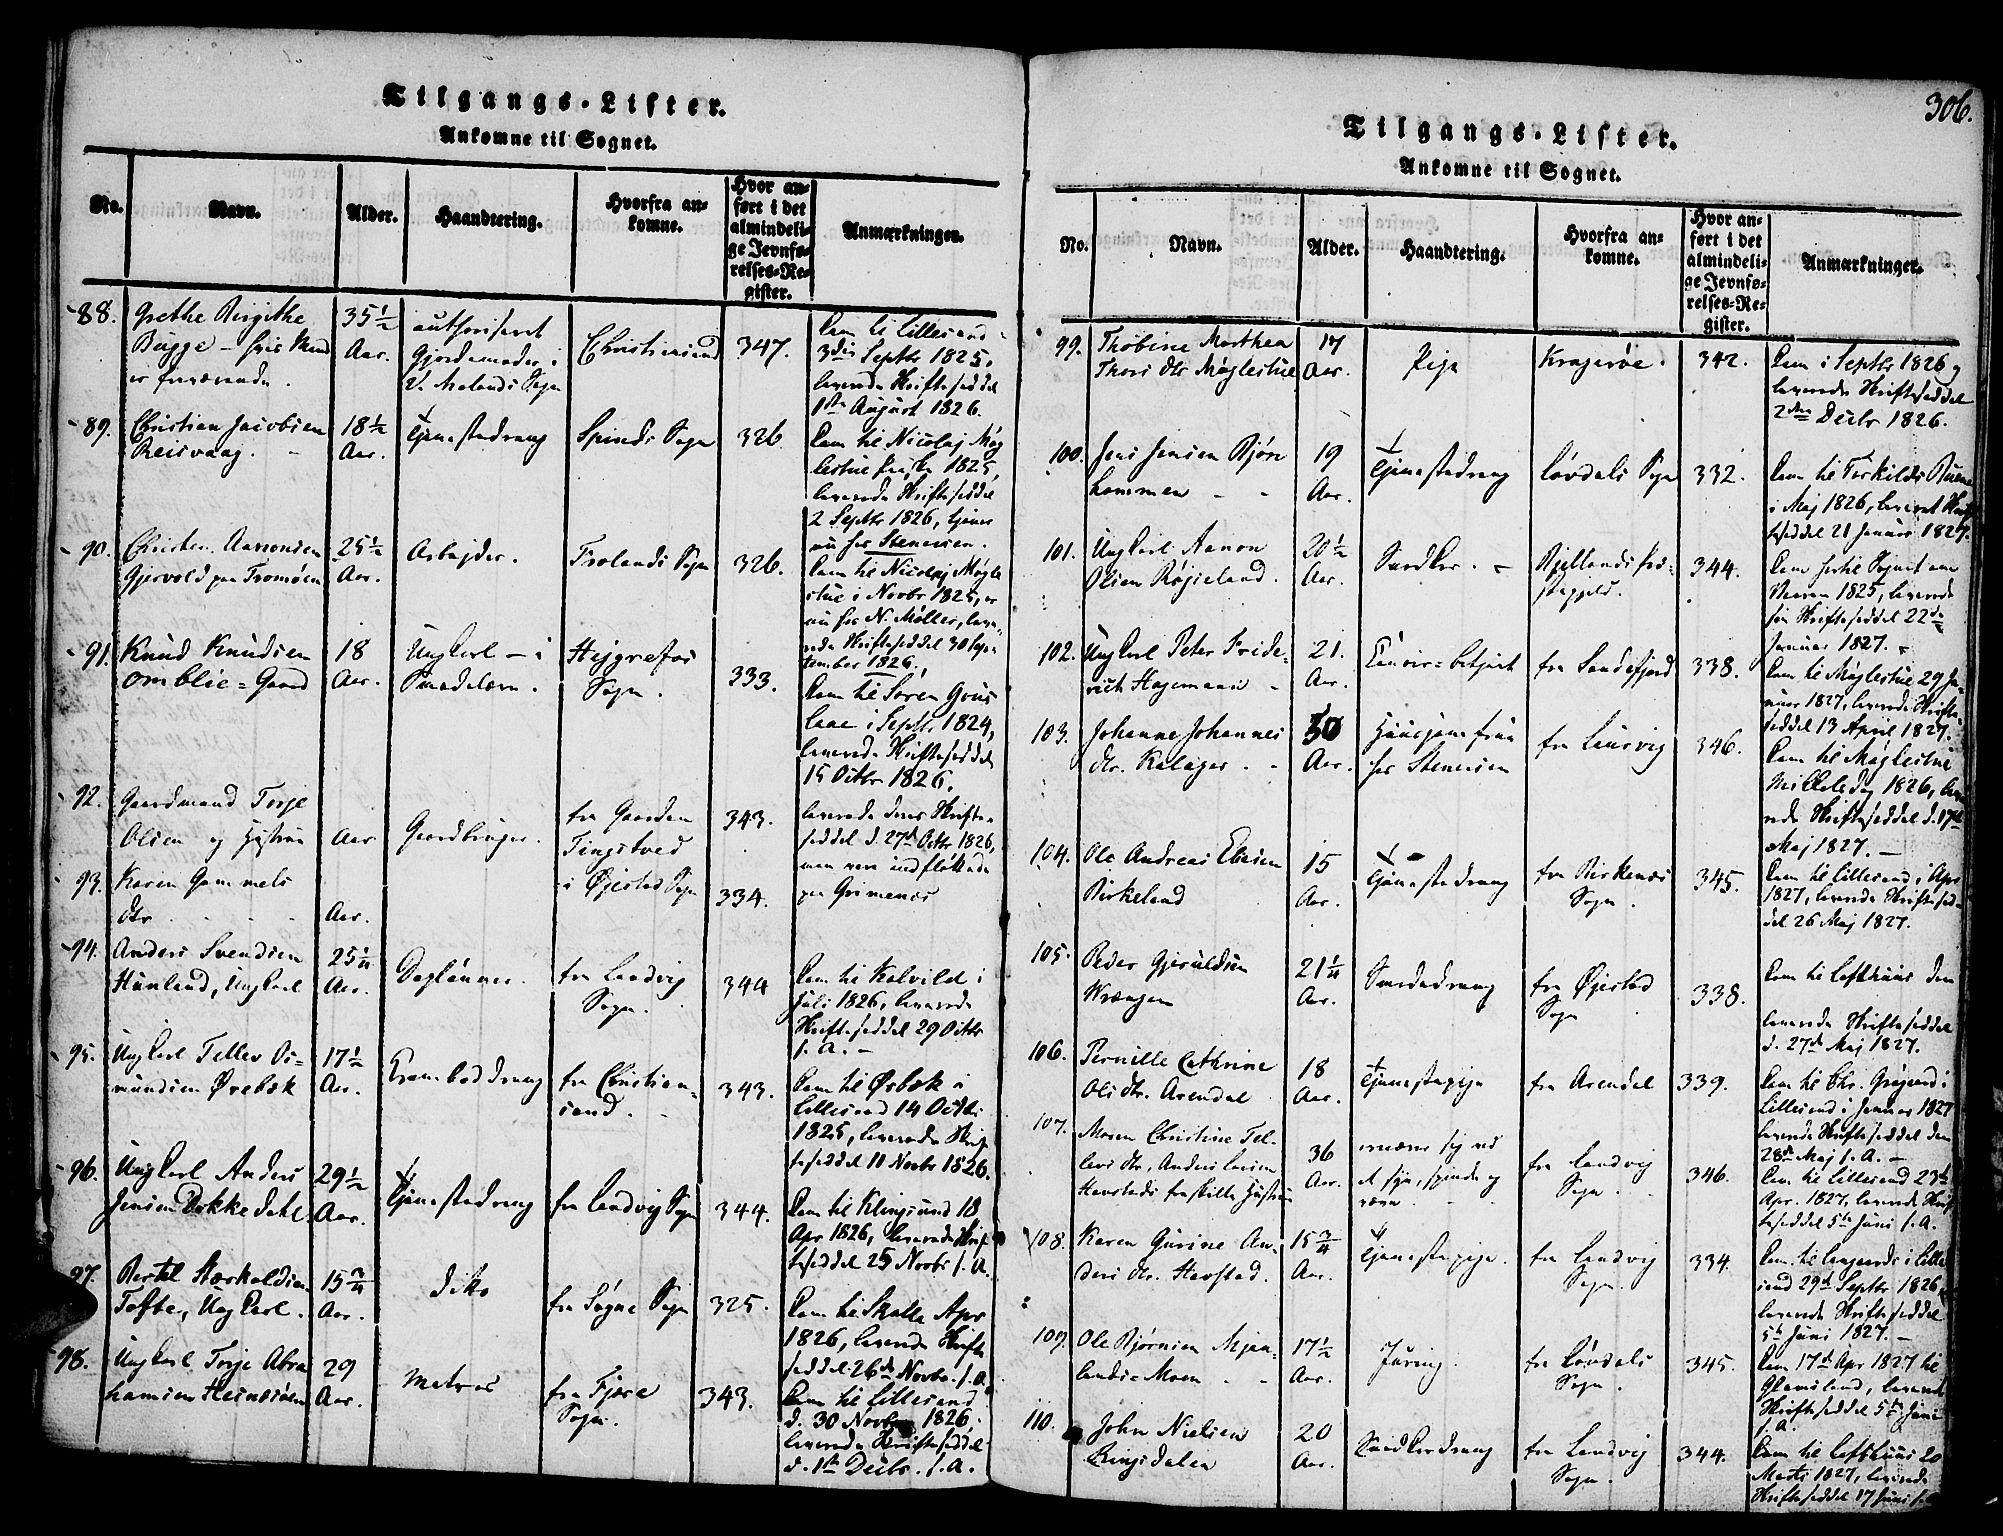 Tilgangs-Lister.
Ankomne til Sognet.
No.
Navn.
Alder.
Haandtering.
Hvorfra an-
komne.
Hvor an-
ført i det
almindeli-
ge Jevnfø-
relses-Re-
gister.
Anmærkninger.
88.
Grethe Birgithe
Bugge – hvis Mand
er fraværende.
35½
Aar.
authoriseret
Gjordemoder i
V. Molands Sogn
Christiansand
347.
Kom til Lillesand
3die Septbr 1825,
leverede Skrifteseddel
1ste August 1826.
89.
Christian Jacobsen
Reisvaag.
18½
Aar.
Tjenestedreng
Spinds Sogn
326
Kom til Nicolaj Møg
lestue 1825,
leverede Skrifteseddel
2 Septbr 1826, tjener
nu hos Stenersen.
90.
Christen Aanonsen
Gjervold paa Tromøen
25½
Aar.
Arbejder.
Frolands Sogn
326.
Kom til Nicolaj Møgle
stue i Novbr 1825, er
nu hos N. Møller, leve-
rede Skrifteseddel 30 Sep-
tember 1826.
91.
Knud Knudsen
Omblie-Gaard
18
Aar.
Ungkarl – i
Smedelære.
Hejgrefos
Sogn.
333.
Kom til Søren Grus
i Septbr. 1824,
leverede Skrifteseddel
15 Octbr 1826.
92.
Gaardmand Torje
Olsen og Hustrue
Aar
Gaardbruger.
fra Gaarden
Tingstved
i Øjestad Sogn
343.
leverede deres Skrifte-
seddel d. 27de Octbr 1826,
men vare indfløttede
paa Grimenes
93.
Karen Gammels
dtr
Aar.
334.
94.
Anders Svendsen
Hunland, Ungkarl
25¼
Aar.
Daglønner.
fra Landvig
Sogn.
344
Kom til Kalvild i
Juli 1826, leverede
Skrifteseddel 29 Octbr
s. A. –
95.
Ungkarl Tellev Os-
mundsen Ørebæk
17½
Aar.
Krambod dreng
fra Christian-
sand.
343.
Kom til Ørbæk i
Lillesand 14 Octbr
1825, leverede Skrif-
teseddel 11 Novbr 1826.
96.
Ungkarl Anders
Jensen Dokkedahl
29½
Aar.
Tjenestedreng
fra Landvig Sogn
344.
Kom til Klingsund 18
Apr 1826, leverede Skrif-
teseddel 25 Novbr s. A.
97.
Bertel Størkoldsen
Tofte, Ungkarl.
15¾
Aar.
dito
fra Søgne Sogn
325.
Kom til Skalle Apr
1826, leverede Skrifte
seddel 26de Novbr. s. A.
98.
Ungkarl Torje Abra
hamsen Hesnæsøen
29
Aar.
Matros
fra Fjære
Sogn.
343.
Kom til Lillesand
d. 30 Novbr 1826.
leverede Skrifteseddel
d. 1ste Decbr. s. A.
306.
Tilgangs-Lister.
Ankomne til Sognet.
No.
Navn.
Alder.
Haandtering.
Hvorfra an-
komne.
Hvor an-
ført i det
almindeli-
ge Jevnfø-
relses-Re-
gister.
Anmærkninger.
99.
Thobine Marthea
Thors dtr Møglestue
17
Aar.
Pige
Kragerøe.
342.
Kom i Septbr 1826 og
leverede Skrifteseddel
2den Decbr 1826.
100.
Jens Jensen Bjørn
kommen
19
Aar.
Tjenestedreng
Løvdals Sogn
332.
Kom til Torkilds Buene
i Maj 1826, leveret Skrif-
teseddel 21 Januar 1827.
101.
Ungkarl Aanon
Olsen Røjseland.
20½
Aar.
Snedker.
Bjellands Præ-
stegjeld.
344.
Kom hertil Sognet om
Vaaren 1825, leverede
sin Skrifteseddel 22de
Januar 1827.
102.
Ungkarl Peter Fride-
rich Hagemann
21.
Aar.
Contoir-betjent
fra Sandefjord
338.
Kom til Møglestue 29 Ja-
nuar 1827, leverede Skrifte-
seddel 13 April 1827.
103.
Johanne Johannes
dtr. Kalager.
50
Aar.
Huusjomfrue
hos Stenersen
fra Laurvig
346.
Kom til Møglestue
Mikkelsdag 1826, leve
rede Skrifteseddel d. 17de
Maj 1827. –
104.
Ole Andreas Ebesen
Birkeland
15
Aar.
Tjenestedreng
fra Birkenæs
Sogn.
345.
Kom til Lillesand i Apr
1827, leverede Skriftesed-
del 26 Maj 1827.
105.
Peder Gjeruldsen
Wrængen
21¼
Aar.
Smededreng
fra Øjestad
Sogn
338.
Kom til Lofthuus den
leverede Skrifteseddel
d. 27de Maj 1827.
106.
Pernille Cathrine
Ols dtr. Arendal
18
Aar.
Tjenestepige
fra Arendal
339.
Kom til Chr. Grøgaard i
Lillesand i Januar 1827
leverede Skrifteseddel den
28de Maj s. A. –
107.
Maren Christine Tel-
levs dtr, Anders Larsen
Havstads fraskilte Hustrue
36
Aar.
ernærer sig ved
at sye, spinde og
væve
fra Landvig
Sogn.
346.
Kom til Lillesand 23de
Apr. 1827, leverede Skrif
teseddel 5te Juni s. A.
108.
Karen Gurine An-
ders dtr. Havstad.
15¾
Aar.
Tjenestepige.
fra Landvig
Sogn.
334.
Kom til Langaards i Lille
sand 29de Septbr 1826,
leverede Skrifteseddel
5te Juni 1827. –
109.
Ole Bjørnsen Mjaa-
lands-Moen
17½
Aar.
Juring.
fra Løvdals
Sogn.
345.
Kom 17de Apr 1827 til
Glamsland, leverede
Skrifteseddel 5te Juni
s. A.
110.
John Nielsen
Ringsdalen
20
Aar.
Snedkerdreng
fra Landvig
Sogn.
344.
Kom til Lofthuus 20
Marts 1827, leverede
Skrifteseddel 17 Juni s. A.